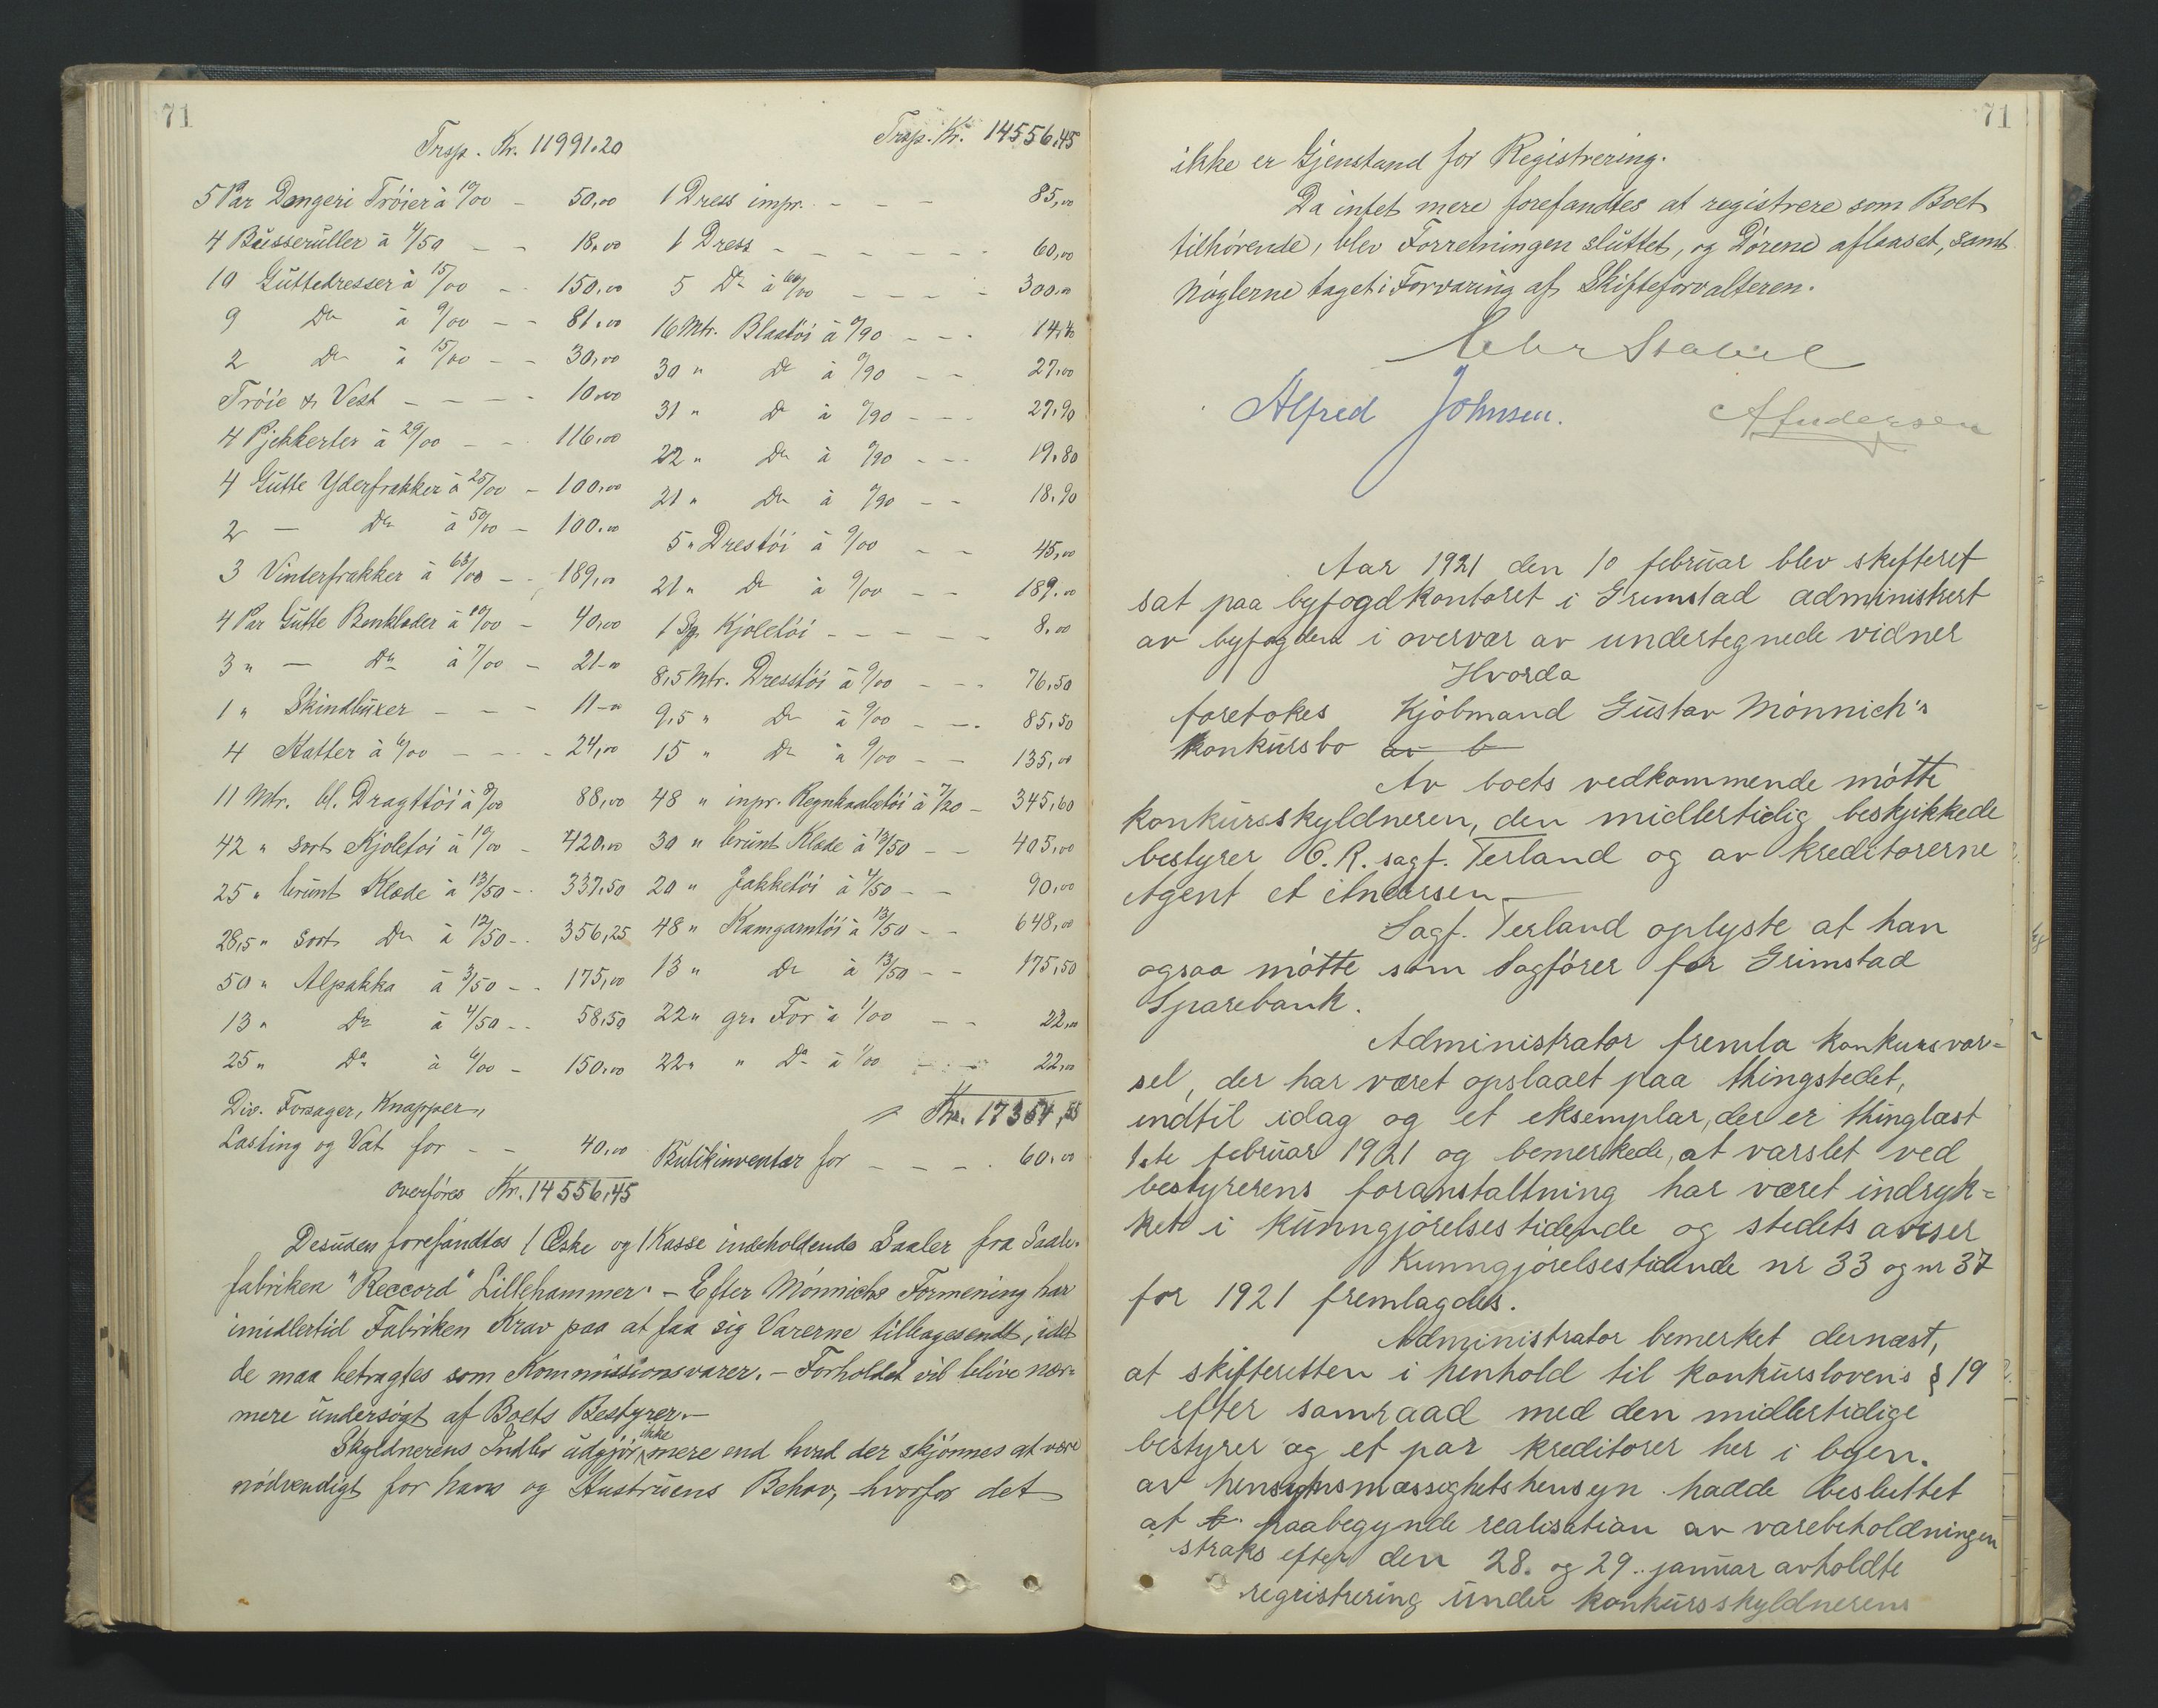 71
Trsp. Kr. 11991.20
5 Par Dongeri Trøier à 10/00 - 50,00
4 Busseruller à 4/50 - - 18,00
10 Guttedresser à 15/00 - - 150,00
9 Do à 9/00 - - 81,00
2 Do à 15/00 - - 30,00
Trøie & Vest - - - - 10,00
4 Pjekkerter à 29/00 - - 116,00
4 Gutte Yderfrakker à 25/00 - 100,00
2 - Do à 50/00 - 100,00
3 Vinterfrakker à 63/00 - - 189,00
4 Par Gutte Benklæder à 10/00 - 40,00
3 " - Do à 7/00 - 21-00
1 " Skindbuxer - - - 11-00
4 Hatter à 6/00 - - - 24,00
11 Mtr. bl. Dragttøi à 8/00 88,00
42 " sort Kjoletøi à 10/00 - 420,00
25 " brunt Klæde à 13/50 - 337,50
28,5 " sort Do à 12/50 - 356,25
50 " Alpakka à 3/50 - - 175,00
13 " Do à 4/50 - - 58,50
25 " Do à 6/00 - 150,00
Div. Forsager, Knapper,
Lasting og Vat for - - 40,00
overføres Kr. 14556,45
Trsp. Kr. 14556,45
1 Dress impr. - - - 85,00
1 Dress - - - - - - 60,00
5 Do à 60/00 - - - - 300,00
16 Mtr. Blaatøi à 0/90 - - - 14,40
30 " Do à 0/90 - - 27,00
31 " Do à 0/90 - - - 27,90
22 " Do à 0/90 - - - 19,80
21 " Do à 0/90 - - 18,90
5 " Drestøi à 9/00 - - 45,00
21 " Do à 9/00 - - 189,00
1 Kjoletøi - - - - - 8,00
8,5 Mtr. Dresstøi à 9/00 - - - 76,50
9,5 " Do à 9/00 - - - 85,50
15 " Do à 9/00 - - 135,00
48 " inpr. Regnkaabetøi à 7/20 - 345,60
30 " brunt Klæde à 13/50 - - 405,00
20 " Jakketøi à 4/50 - - 90,00
48 " Kamgarntøi à 13/50 - - 648,00
13 " Do à 13/50 - - 175,50
22 " gr. For à 1/00 - - 22,00
22 " " Do à 1/00 - - 22,00
Kr. 17354,55
Butikinventar for - - - - 60,00
Desuden forefandtes 1 Æske og 1 Kasse indeholdende Saaler fra Saale-
fabriken "Reccord" Lillehammer. - Efter Mønnichs Formening har
imidlertid Fabriken Krav paa at faa sig Varerne tilbagesendt, idet
de maa betragtes som Kommissionsvarer. - Forholdet vil blive nær-
mere undersøgt af Boets Bestyrer. -
Skyldnerens Indbo udgjør ikke mere end hvad der skjønnes at være
nødvendigt for hans og Hustruens Behov, hvorfor det
71
ikke er Gjenstand for Registrering.
Da intet mere forefandtes at registrere som Boet
tilhørende, blev Forretningen sluttet, og Dørene aflaaset, samt
Nøglerne taget i Forvaring af Skifteforvalteren.
Alfred Johnsen.
A Andersen
Aar 1921 den 10 februar blev skifteret
sat paa byfogdkontoret i Grimstad administrert
av byfogden i overvær av undertegnede vidner
Hvorda
foretokes Kjøbmand Gustav Mønnich's
konkursbo av b
Av boets vedkommende møtte
konkursskyldneren, den midlertidig beskjikkede
bestyrer O. R. sagf. Terland og av kreditorerne
Agent A Andersen
Sagf. Terland oplyste at han
ogsaa møtte som Sagfører for Grimstad
Sparebank.
Administrator fremla konkursvar=
sel, der har været opslaaet paa thingstedet,
indtil idag og et eksemplar, der er thinglæst
1ste februar 1921 og bemerkede, at varslet ved
bestyrerens foranstaltning har været indryk=
ket i kunngjørelsestidende og stedets aviser
Kunngjørelsestidende nr 33 og nr 37
for 1921 fremlagdes.
Administrator bemerket dernæst,
at skifteretten i henhold til konkurslovens § 19
efter samraad med den midlertidige
bestyrer og et par kreditorer her i byen.
av hensigtsmæssighetshensyn hadde besluttet
at b paabegynde realisation av varebeholdningen
straks efter den 28. og 29. januar avholdte
registrering under konkursskyldnerens